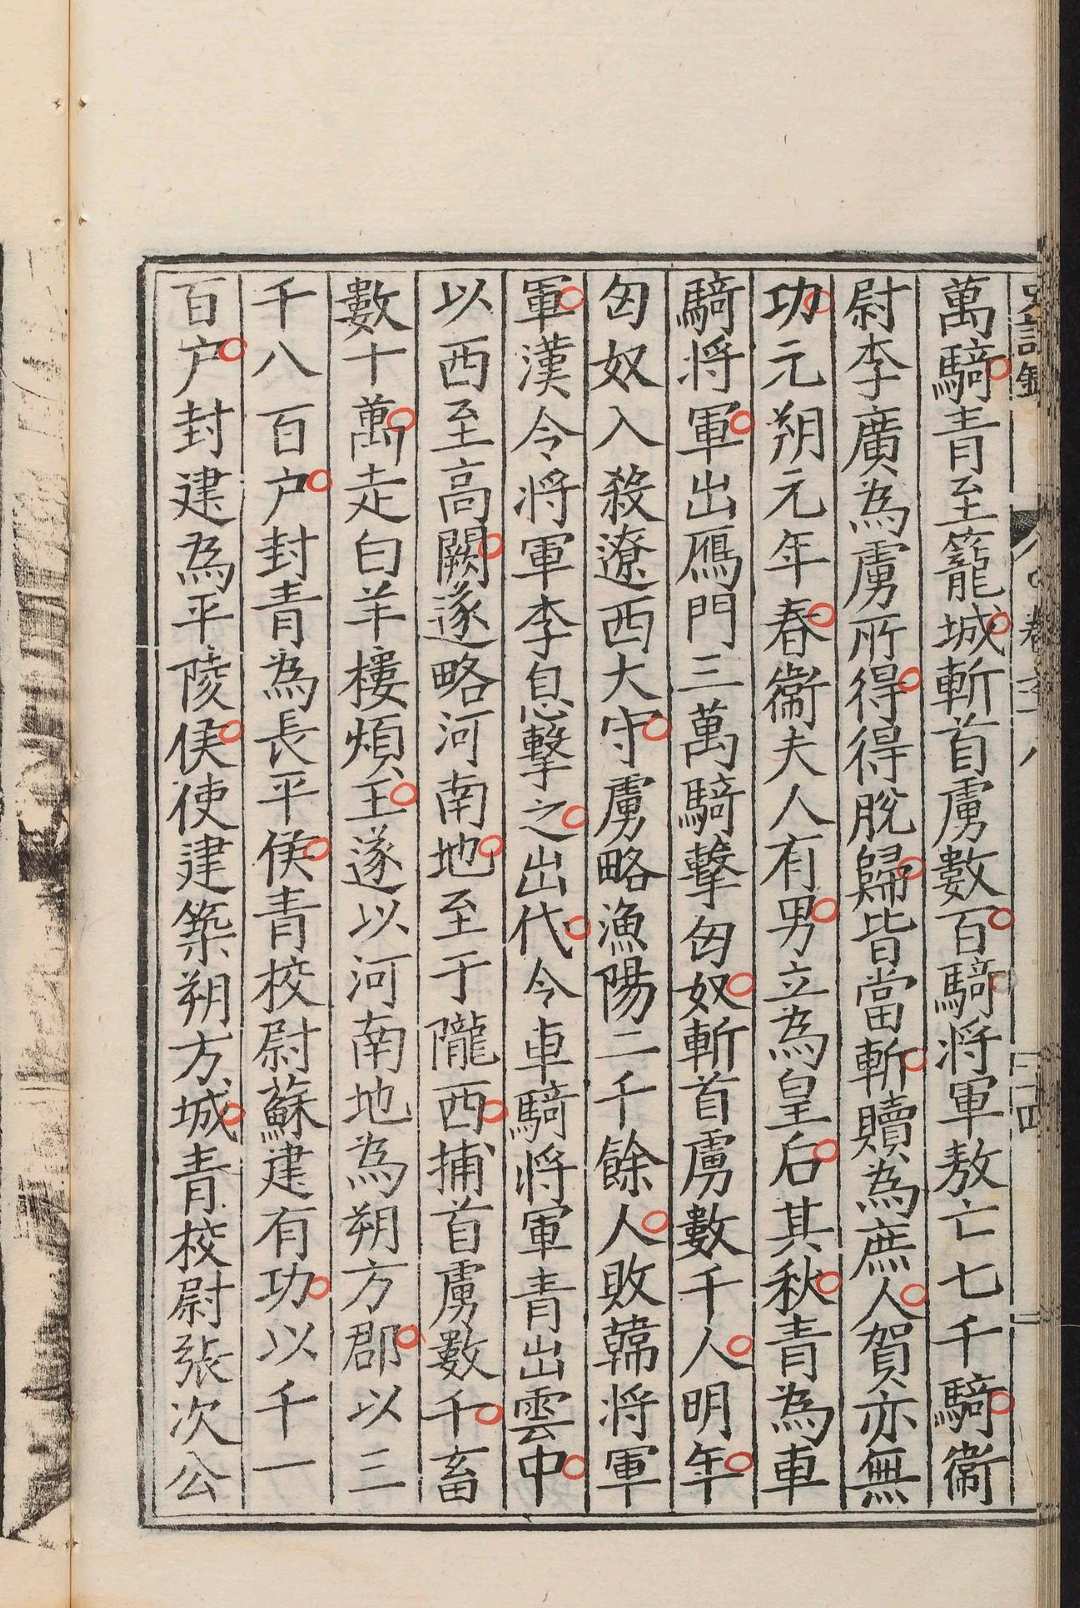 萬騎青至籠城斬首虜數百騎將軍敖亡七千騎衞
尉李廣為虜所得得脫歸皆當斬贖為庶人賀亦無
功元朔元年春衞夫人有男立為皇后其秋青為車
騎將軍出鴈門三萬騎擊匈奴斬首虜數千人明年
匈奴入殺遼西大守虜略漁陽二千餘人敗韓將軍
軍漢令將軍李息擊之出代令車騎將軍青出雲中
以西至高闕遂略河南地至于隴西捕首虜數千畜
數十萬走白羊樓煩王遂以河南地為朔方郡以三
千八百户封青為長平侯青校尉蘇建有功以千一
百户封建為平陵侯使建築朔方城青校尉張次公